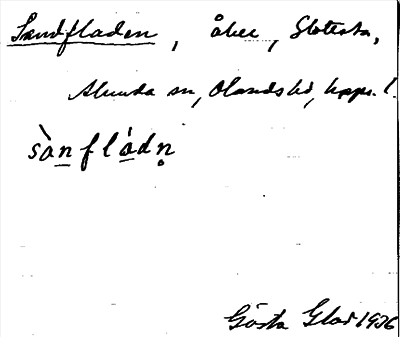 Sandfladen, åker, Slotersta,
Alunda sn, Olands hd, Upps. l.
sànfládn̥
Gösta Glas 1936